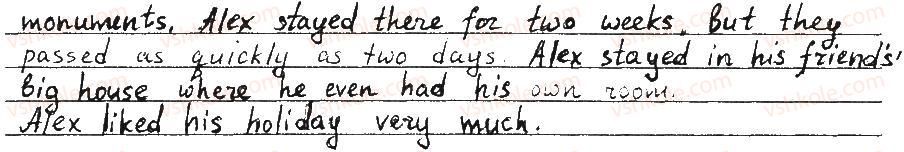 monuments. Alex stayed there for two weeks. But they
passed as quickly as two days. Alex stayed in his friends'
big house where he even had his own room.
Alex liked his holiday very much.